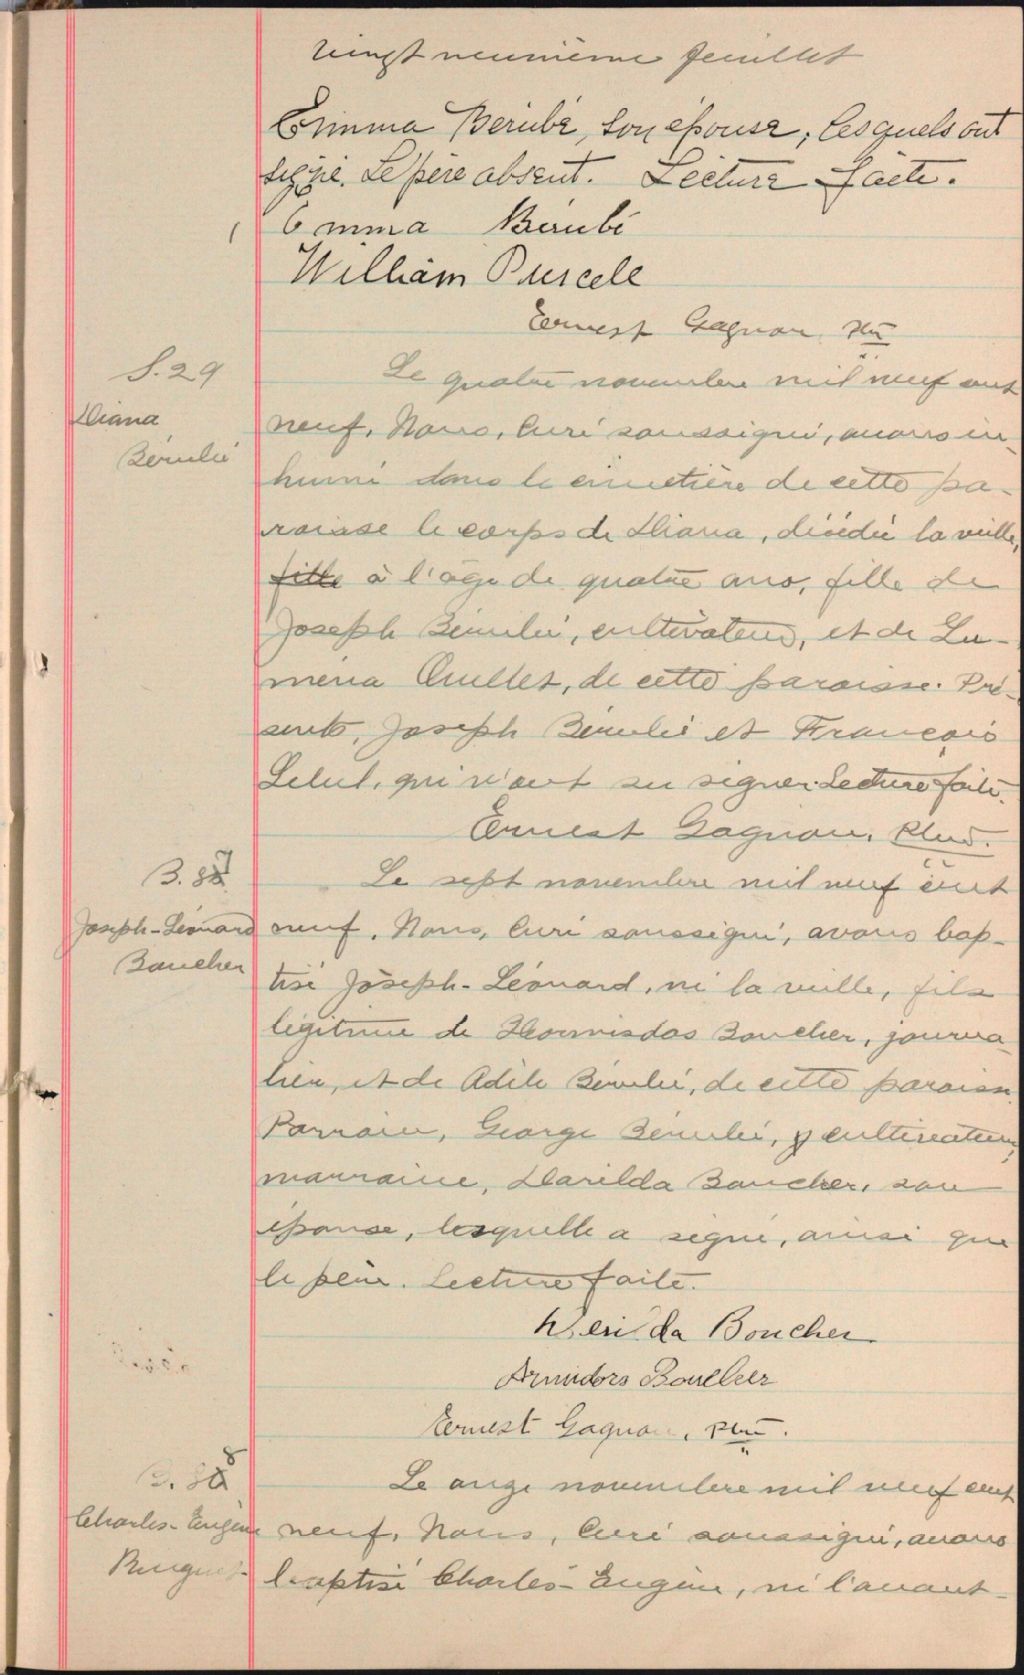 vingt neuvième feuillet
Emma Bérubé, son épouse, lesquels ont
signé. Le père absent. Lecture faite.
Emma Bérubé
William Purcell
Ernest Gagnon Ptre
S. 29
Diana
Bérubé
Le quatre novembre mil neuf cent
neuf, Nous, Curé soussigné, avons in-
humé dans le cimetière de cette pa-
roisse le corps de Diana, décédée la veille,
fille à l'âge de quatre ans, fille de
Joseph Bérubé, cultivateur, et de Lu-
ména Ouellet, de cette paroisse. Pré-
sents, Joseph Bérubé et François
Lebel, qui n'ont su signer. Lecture faite.
Ernest Gagnon, Ptre.
B. 87
Joseph-Léonard
Boucher
Le sept novembre mil neuf cent
neuf, Nous, Curé soussigné, avons bap-
tisé Joseph-Léonard, né la veille, fils
légitime de Hormisdas Boucher, journa-
lier, et de Adèle Bérubé, de cette paroisse.
Parrain, George Bérubé, cultivateur,
marraine, Darilda Boucher, son
épouse, lesquelle a signé, ainsi que
le père. Lecture faite.
Boucher
Armidors Boucher
Ernest Gagnon, Ptre.
B. 88
Charles-Eugène
Le onze novembre mil neuf cent
neuf, Nous, Curé soussigné, avons
baptisé Charles-Eugène, né l'avant-